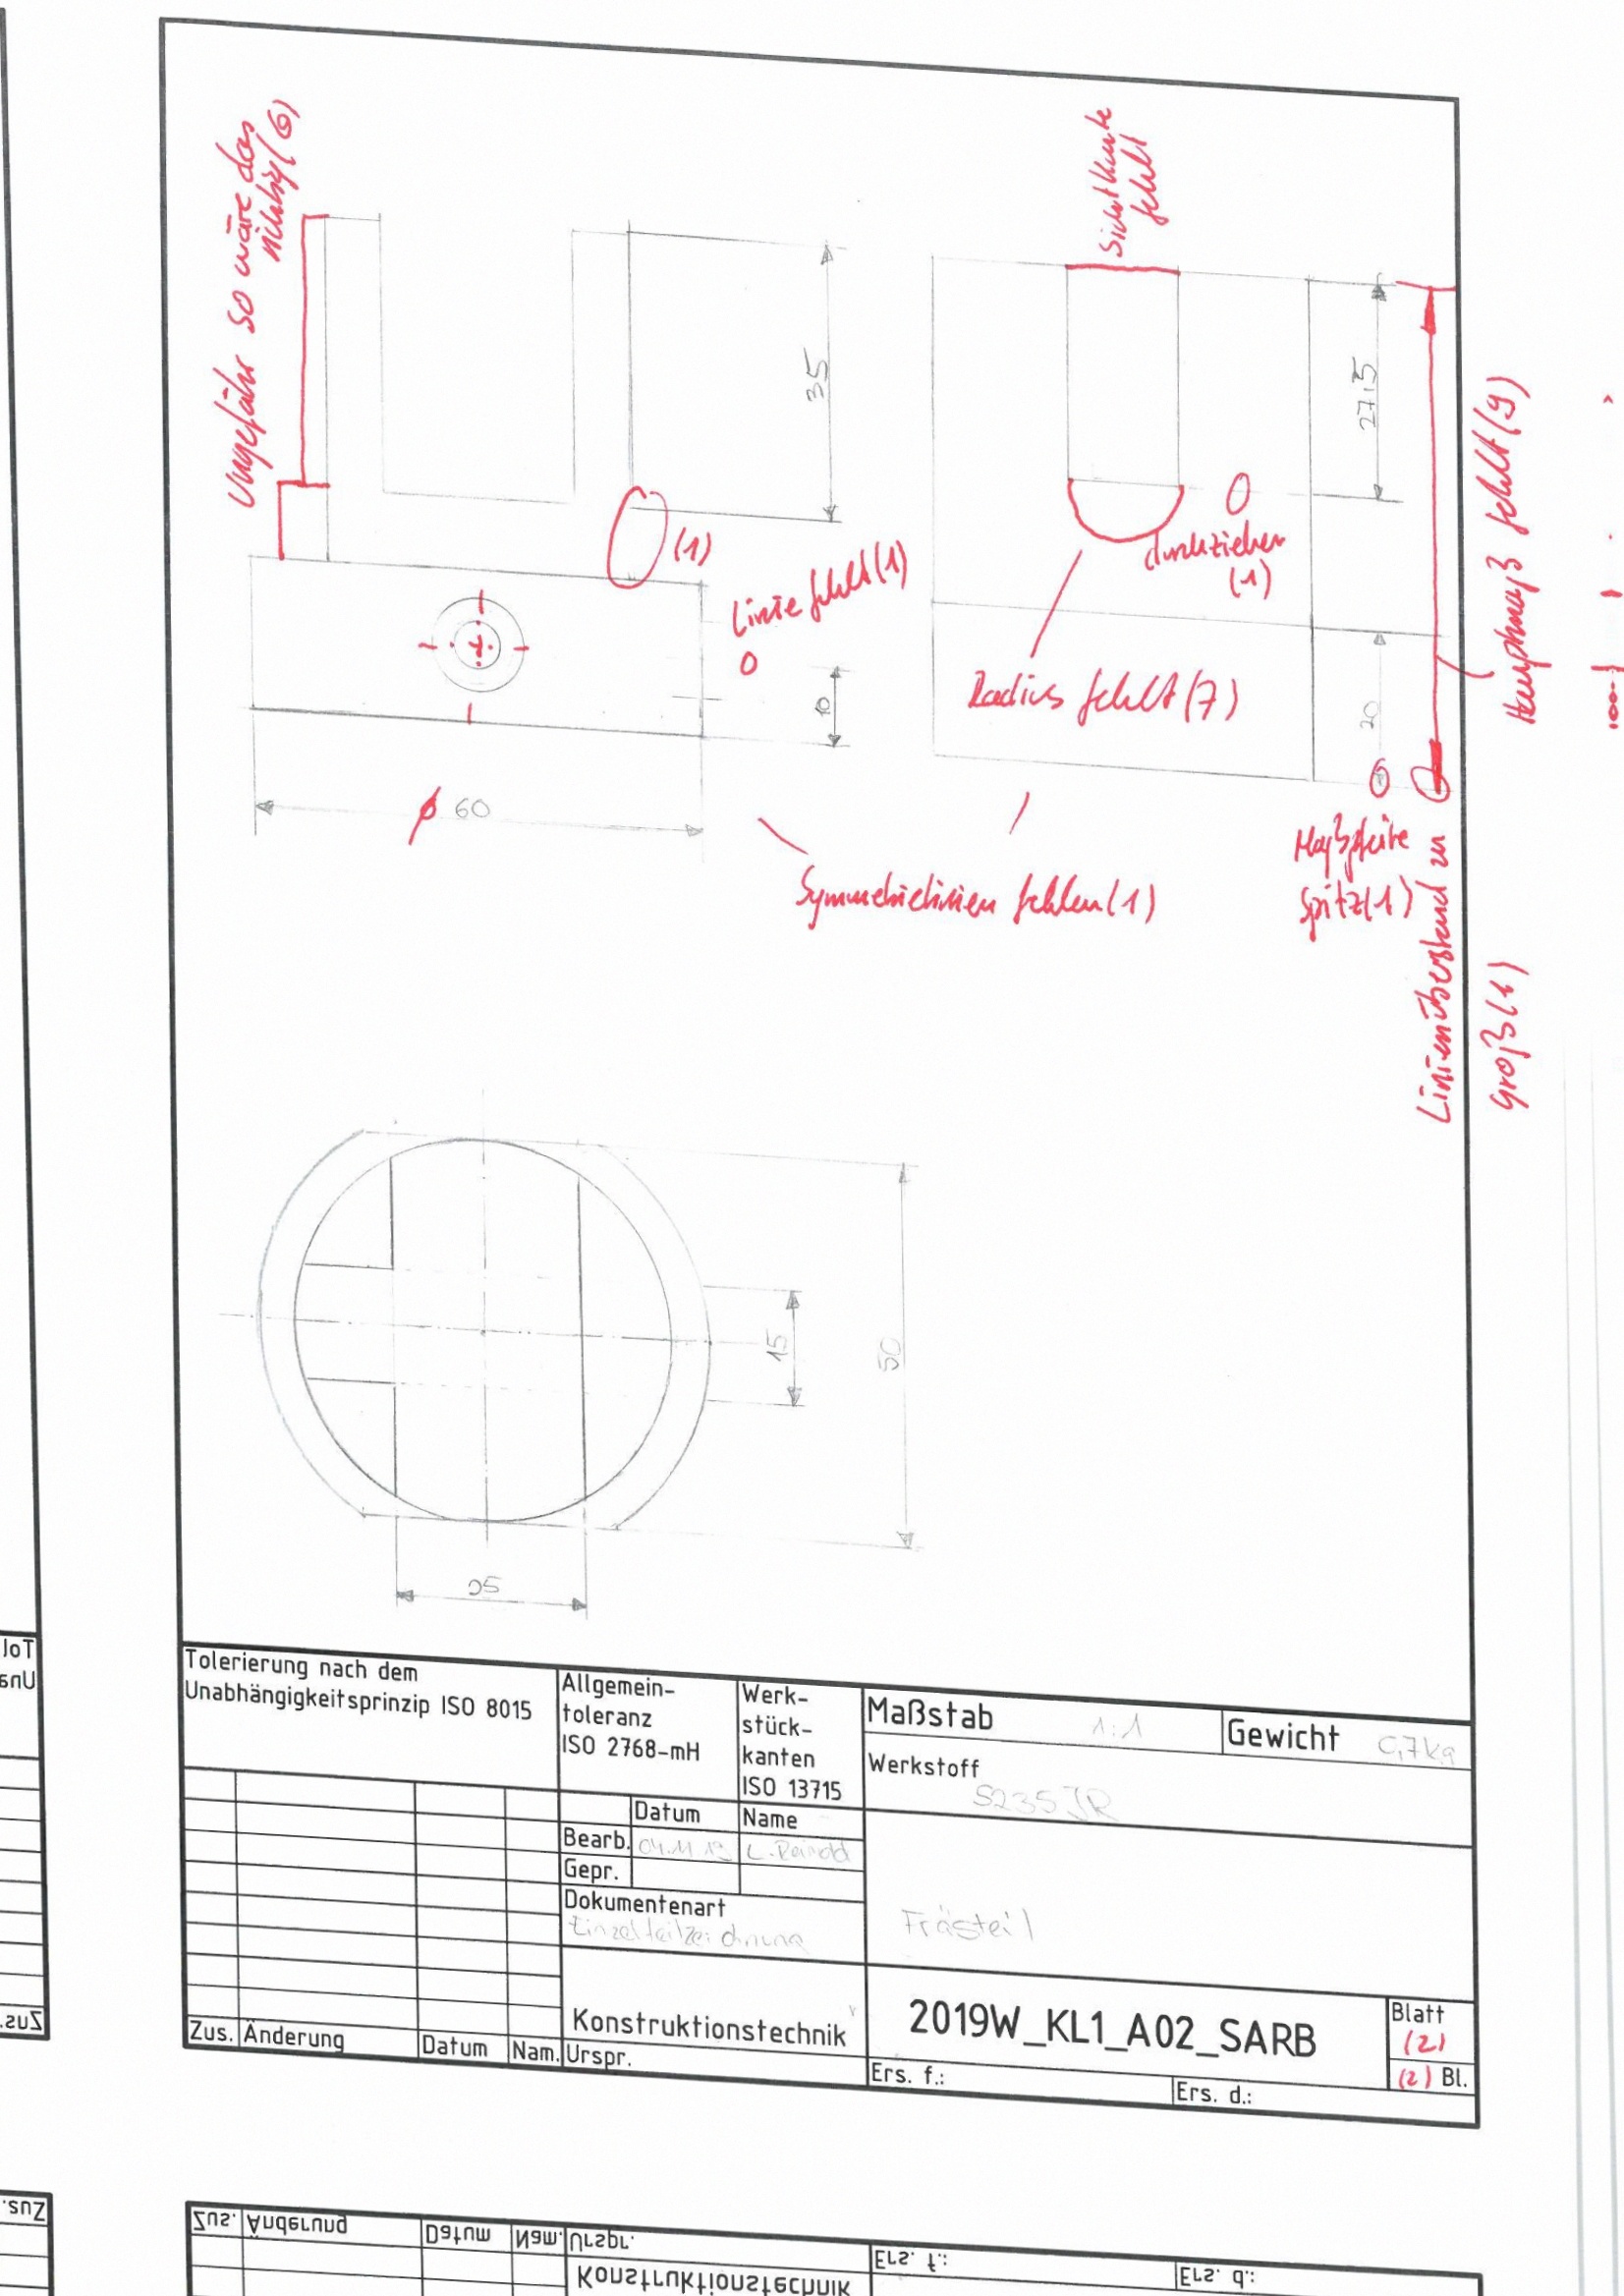 Ungefähr so wäre das
richtig (6)
Sichtkante
fehlt
35
27,5
(1)
Linie fehlt (1)
durchziehen
(1)
Hauptmaß fehlt (9)
Radius fehlt (7)
10
20
⌀ 60
Symmetrielinien fehlen (1)
Maßpfeile
spitz (1)
Linienüberstand zu
groß (1)
15
50
25
Tolerierung nach dem
Unabhängigkeitsprinzip ISO 8015
Allgemein-
toleranz
ISO 2768-mH
Werk-
stück-
kanten
ISO 13715
Maßstab 1:1
Gewicht 0,7kg
Werkstoff
S235JR
Datum Name
Bearb. 04.11.19 L. Reinold
Gepr.
Dokumentenart
Einzelteilzeichnung
Frästeil
Konstruktionstechnik
2019W_KL1_A02_SARB
Blatt
(2)
(2) Bl.
Zus. Änderung Datum Nam. Urspr.
Ers. f.: Ers. d.:
Tol
Una
Zus.
Zus.
Zus. Änderung Datum Nam. Urspr.
Ers. f.: Ers. d.:
Konstruktionstechnik